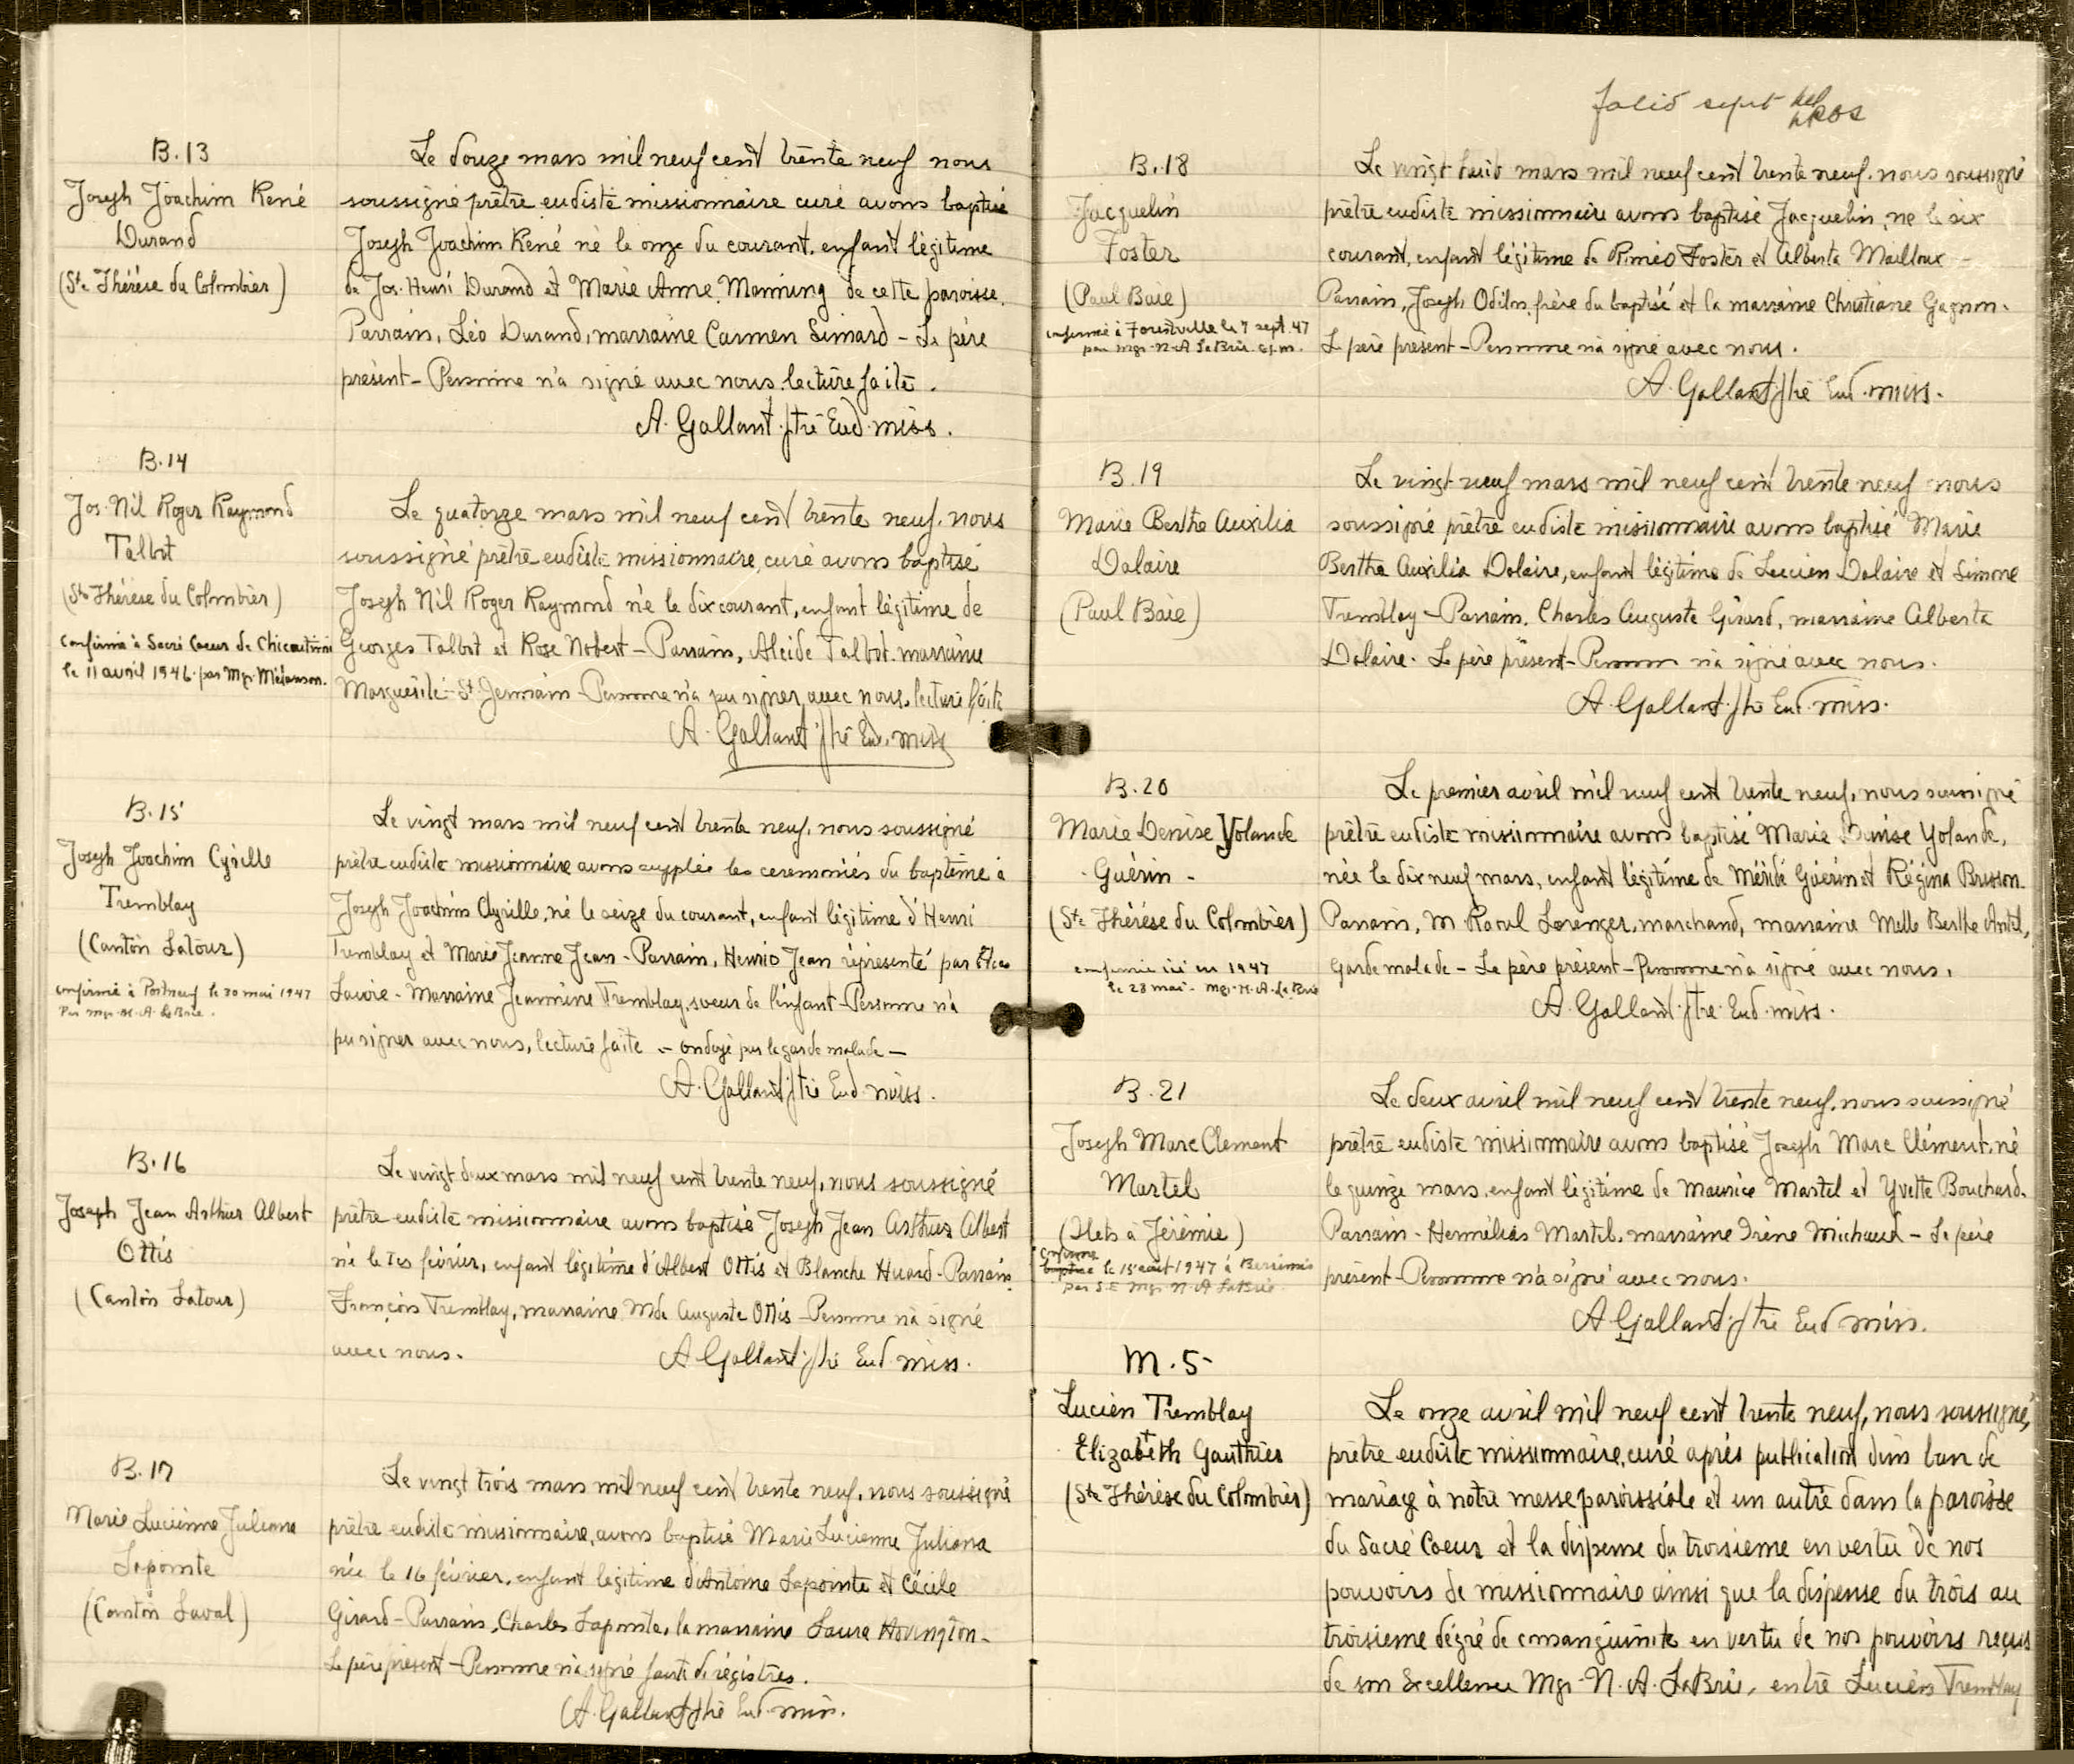 B.13
Joseph Joachim René
Durand
(Ste Thérèse du Colombier)
Le douze mars mil neuf cent trente neuf nous
soussigné prêtre eudiste missionnaire curé avons baptisé
Joseph Joachim René né le onze du courant, enfant légitime
de Jos. Henri Durand et Marie Anne Manning de cette paroisse.
Parrain, Léo Durand, marraine Carmen Simard - Le père
présent - Personne n'a signé avec nous, lecture faite.
A. Gallant ptre Eud. miss.
B.14
Jos. Nil Roger Raymond
Talbot
(Ste Thérèse du Colombier)
Confirmé à Sacré Coeur de Chicoutimi
le 11 avril 1946 par Mgr. Mélanson.
Le quatorze mars mil neuf cent trente neuf, nous
soussigné prêtre eudiste missionnaire, curé avons baptisé
Joseph Nil Roger Raymond né le dix courant, enfant légitime de
Georges Talbot et Rose Nobert - Parrain, Alcide Talbot, marraine
Marguerite St Germain - Personne n'a pu signer avec nous, lecture faite
A. Gallant ptre Eud. miss
B.15
Joseph Joachim Cyrille
Tremblay
(Canton Latour)
confirmé à Portneuf le 30 mai 1947
Par Mgr. N. A. LaBrie.
Le vingt mars mil neuf cent trente neuf, nous soussigné
prêtre eudiste missionnaire avons supplée les ceremonies du baptême à
Joseph Joachim Cyrille, né le seize du courant, enfant légitime d'Henri
Tremblay et Marie Jeanne Jean - Parrain, Henrio Jean réprésenté par
Savoie - Marraine Jeannine Tremblay, soeur de l'enfant - Personne n'a
pu signer avec nous, lecture faite - ondoyé par le garde malade -
A. Gallant ptre Eud. miss.
B.16
Joseph Jean Arthur Albert
Ottis
(Canton Latour)
Le vingt deux mars mil neuf cent trente neuf, nous soussigné
prêtre eudiste missionnaire avons baptisé Joseph Jean Arthur Albert
né le février, enfant légitime d'Albert Ottis et Blanche Huard - Parrain
François Tremblay, marraine Mde Auguste Ottis - Personne n'a signé
avec nous.
A. Gallant ptre Eud. miss.
B.17
Marie Lucienne Juliana
Lapointe
(Canton Laval)
Le vingt trois mars mil neuf cent trente neuf, nous soussigné
prêtre eudiste missionnaire, avons baptisé Marie Lucienne Juliana
née le 16 février, enfant légitime d'Antoine Lapointe et Cécile
Girard - Parrain, Charles Lapointe, la marraine Laura Hovington -
Le père présent - Personne n'a signé faute de régistres.
A. Gallant ptre Eud. miss.
folio sept
B.18
Jacquelin
Foster
(Paul Baie)
confirmé à Forestville le 7 sept. 47
par Mgr. N-A LaBrie c.j.m.
Le vingt huit mars mil neuf cent trente neuf, nous soussigné
prêtre eudiste missionnaire avons baptisé Jacquelin, né le six
courant, enfant légitime de Roméo Foster et Alberta Mailloux -
Parrain, Joseph Odilon, frère du baptisé et la marraine Christiane Gagnon.
Le père présent - Personne n'a signé avec nous.
A. Gallant ptre Eud. miss.
B.19
Marie Berthe Auxilia
Dalaire
(Paul Baie)
Le vingt neuf mars mil neuf cent trente neuf nous
soussigné prêtre eudiste missionnaire avons baptisé Marie
Berthe Auxilia Dalaire, enfant légitime de Lucien Dalaire et Simone
Tremblay - Parrain, Charles Auguste Girard, marraine Alberta
Dalaire. Le père présent - Personne n'a signé avec nous.
A. Gallant ptre Eud. miss.
B.20
Marie Denise Yolande
Guérin
(Ste Thérèse du Colombier)
confirmée ici en 1947
le 28 mai - Mgr. N. A. LaBrie
Le premier avril mil neuf cent trente neuf, nous soussigné
prêtre eudiste missionnaire avons baptisé Marie Denise Yolande,
née le dix neuf mars, enfant légitime de Méridé Guérin et Régina Brisson.
Parrain, M Raoul Loranger, marchand, marraine Melle Berthe
Garde malade - Le père présent - Personne n'a signé avec nous.
A. Gallant ptre Eud. miss.
B.21
Joseph Marc Clement
Martel
(Ilets à Jérémie)
Confirmé
baptisé le 15 août 1947 à Bersimis
par S.E Mgr N-A LaBrie.
Le deux avril mil neuf cent trente neuf, nous soussigné
prêtre eudiste missionnaire avons baptisé Joseph Marc Clément, né
le quinze mars, enfant légitime de Maurice Martel et Yvette Bouchard.
Parrain - Herménégilde Martel, marraine Irène Michaud - Le père
présent - Personne n'a signé avec nous.
A. Gallant ptre Eud miss.
M.5
Lucien Tremblay
+
Elizabeth Gauthier
(Ste Thérèse du Colombier)
Le onze avril mil neuf cent trente neuf, nous soussigné,
prêtre eudiste missionnaire, curé après publication d'un ban de
mariage à notre messe paroissiale et un autre dans la paroisse
du Sacré Coeur et la dispense du troisieme en vertu de nos
pouvoirs de missionnaire ainsi que la dispense du trois au
troisieme dégré de consanguinité en vertu de nos pouvoirs reçus
de son Excellence Mgr. N. A. LaBrie, entre Lucien Tremblay